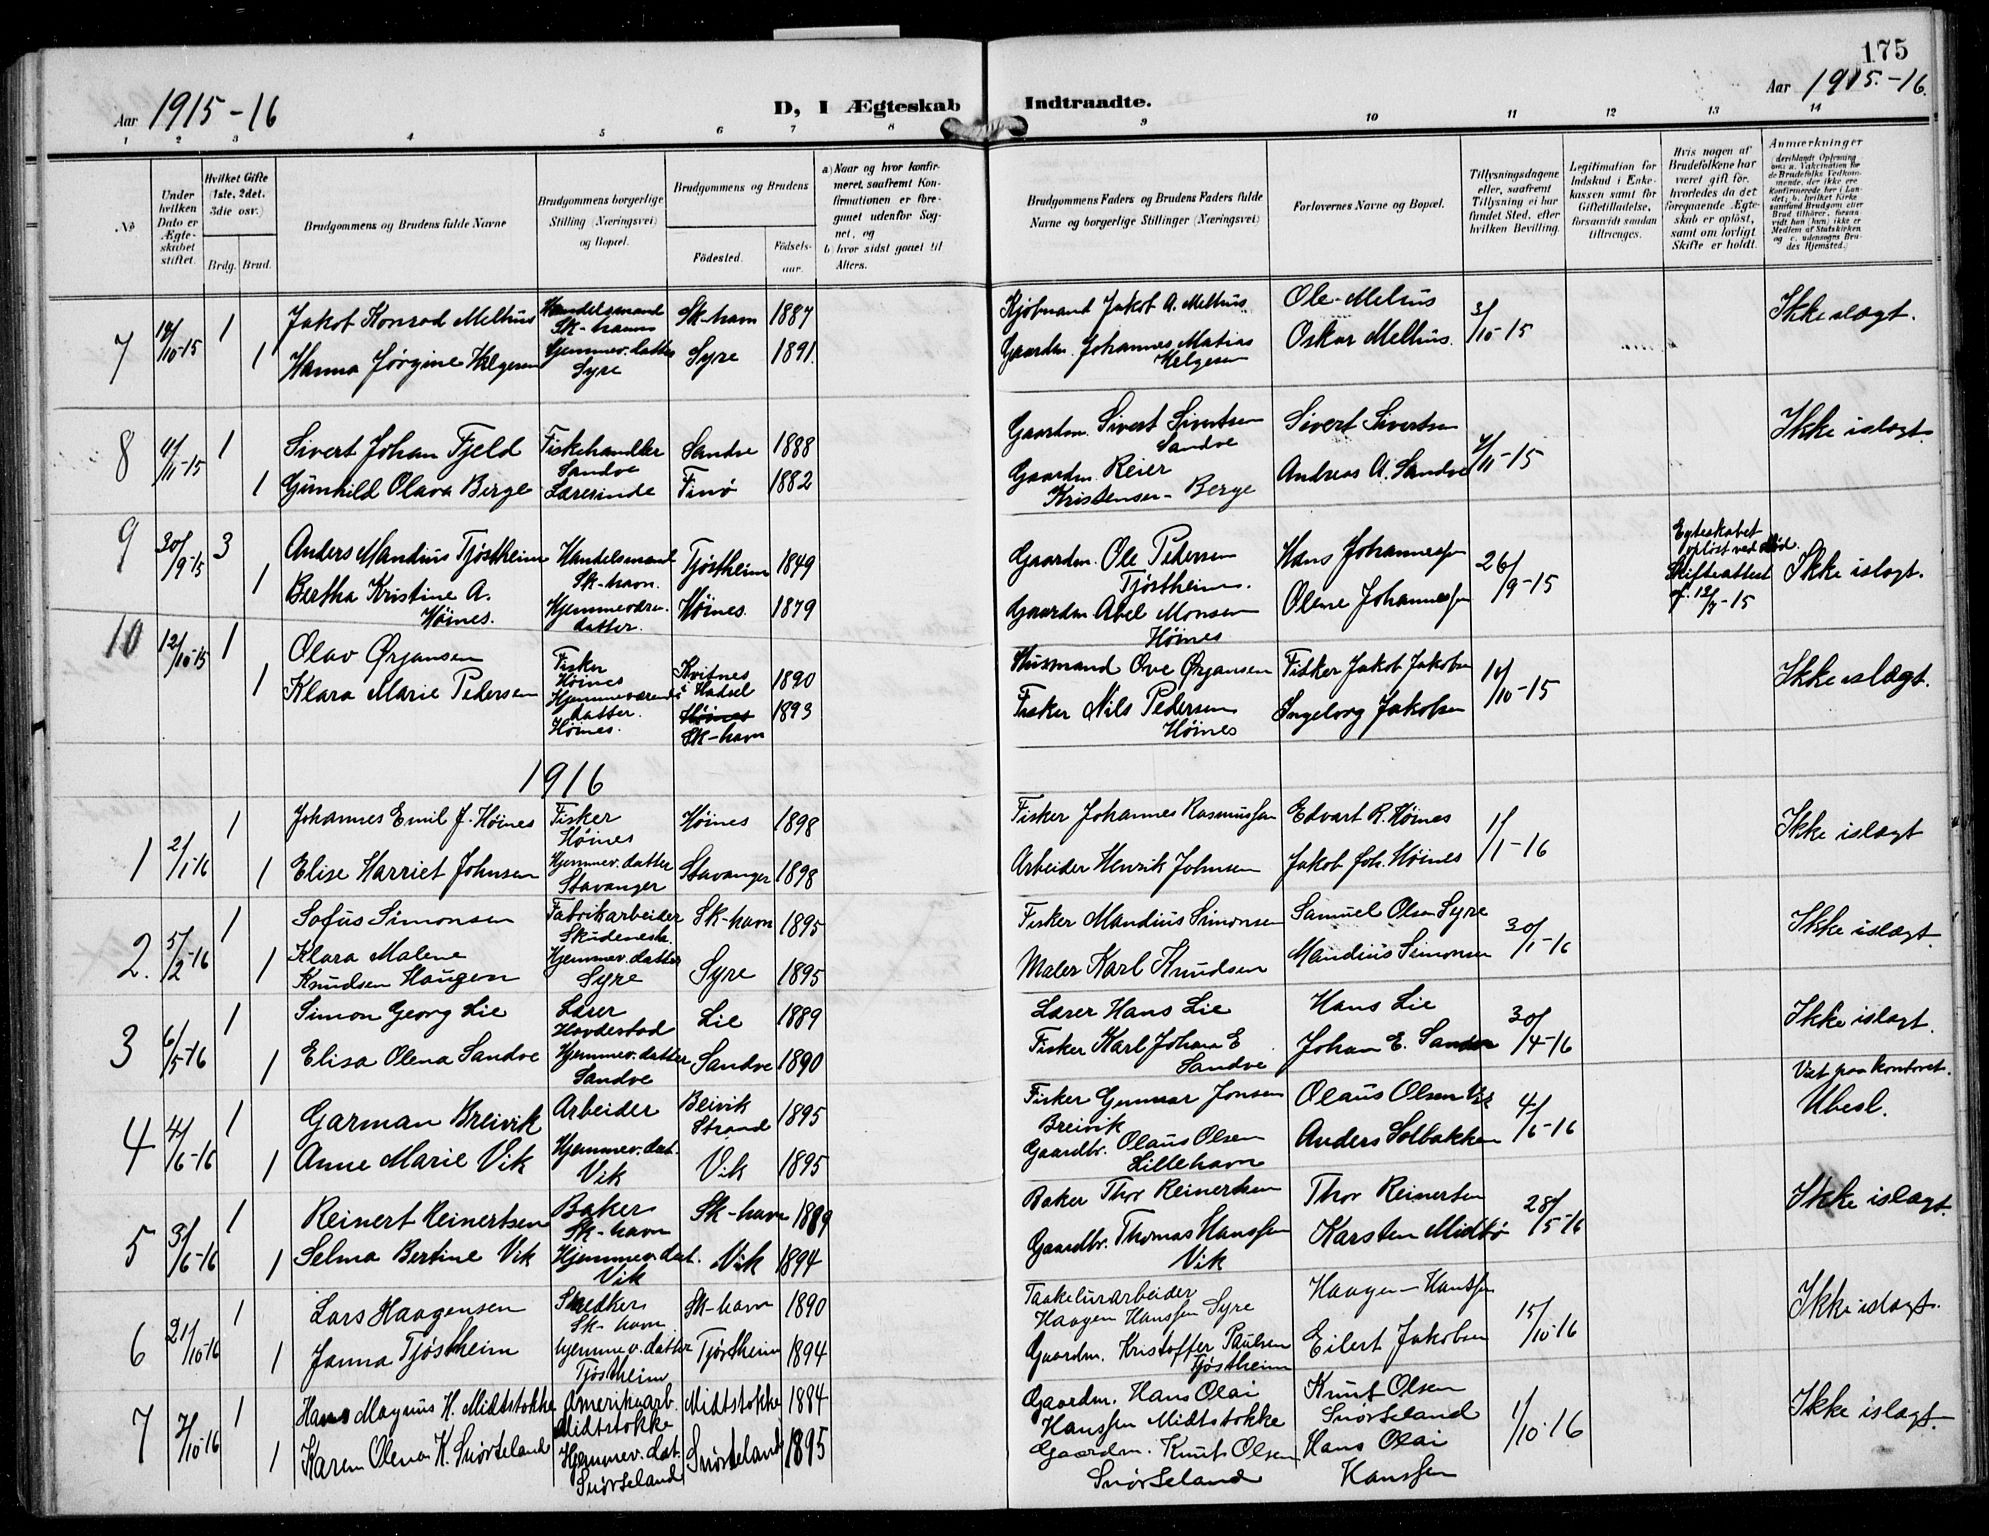 175
Aar 1915-16
D, I Ægteskab Indtraadte.
Aar 1915.-16.
1 2 3 4 5 6 7 8 9 10 11 12 13 14
No
Under hvilken Dato er Ægteskabet stiftet.
Hvilket Gifte (1ste, 2det. 3die osv.)
Brdg. Brud.
Brudgommens og Brudens fulde Navne
Brudgommens borgerlige Stilling (Næringsvei) og Bopæl.
Brudgommens og Brudens
Fødested.
Fødselsaar.
a) Naar og hvor konfirmeret, saafremt Konfirmationen er foregaaet udenfor Sognet, og
b) hvor sidst gaaet til Alters.
Brudgommens Faders og Brudens Faders fulde Navne og borgerlige Stillinger (Næringsvei)
Forlovernes Navne og Bopæl.
Tillysningsdagene eller, saafremt Tillysning ei har fundet Sted, efter hvilken Bevilling.
Legitimation for Indskud i Enkekassen samt for Giftetilladelse, forsaavidt saadan tiltrænges.
Hvis nogen af Brudefolkene har været gift før, hvorledes da det foregaaende Ægteskab er opløst, samt om lovligt Skifte er holdt.
Anmærkninger
7 1 Jakob Konrad Melhus Handelsmand Sk-havn Sk-havn 1887 Kjøbmand Jakob A. Melhus Ole Melhus 3/10-15 Ikke islægt.
1 Hanna Jørgine Helgesen Hjemmev. datter Syre Syre 1891. Gaardm. Johannes Matias Helgesen Oskar Melhus.
8 1 Sivert Johan Fjeld Fiskehandler Sandve Sandve 1888 Gaardm. Sivert Sivertsen Sandve Sivert Sivertsen Ikke islægt
1 Gunhild Olava Berge Lærerinde Finø 1882 Gaardm. Reier Kristensen Berge Andreas A. Sandve
9 30/9-15 3 Anders Mandius Tjøstheim Handelsmand Sk-havn. Tjøstheim 1849 Gaardm. Ole Pedersen Tjøstheim. Hans Johannessen 26/9-15 Egteskabet opløst ved død. Skifteattest Ikke islægt.
1 Bertha Kristine A. Høines. Hjemmeværn. datter. Høines. 1879 Gaardm Abel Monsen Høines Olene Johannessen
10 12/10-15 1 Olav Ørjansen Fisker Høines Kvitnes i Hadsel 1890 Husmand Ove Ørjansen Fisker Jakob Jakobsen 10/10-15 Ikke islægt.
1 Klara Marie Pedersen Hjemmeværende datter. Høines. Høines Sk-havn 1893 Fisker Nils Pedersen Høines Ingeborg Jakobsen
1916
1 2/1-16 1 Johannes Emil J. Høines Fisker Høines Høines 1898 Fisker Johannes Rasmussen Edvart R. Høines 1/1-16 Ikke islægt
1 Elise Harriet Johnsen Hjemmev. datter Stavanger Stavanger 1898 Arbeider Henrik Johnsen Jakob Joh. Høines
2. 5/2-16 1 Sofus Simonsen Fabrikarbeider Skudenesh. Sk-havn 1895 Fisker Mandius Simonsen Samuel Olsen Syre 30/1-16 Ikke islægt.
1 Klara Malene Knudsen Haugen Hjemmev. datter Syre Syre 1895 Maler Karl Knudsen Mandius Simonsen
3 6/5-16 1 Simon Georg Lie Lærer Hovdestad Lie 1889 Lærer Hans Lie Hans Lie 30/4-16 Ikke islægt.
1 Elisa Olena Sandve Hjemmev. datter Sandve Sandve 1890 Fisker Karl Johan E Sandve Johan E. Sandve
4 4/6-16 1 Garman Breivik Arbeider Breivik Strand 1895 Fisker Gunnar Jonsen Breivik Olaus Olsen Vik 4/6-16 Viet paa kontoret. Ubesl.
1 Anne Marie Vik Hjemmev. dat. Vik Vik 1895 Gaardbr. Olaus Olsen Lillehavn Anders Solbakken
5 3/6-16 1 Reinert Reinertsen Baker Sk-havn Sk-havn 1889 Baker Thor Reinertsen Thor Reinertsen 28/5-16 Ikke islægt.
1 Selma Bertine Vik Hjemmev. dat. Vik Vik 1894 Gaardbr. Thomas Hanssen Vik Karsten Midbø
6 21/10-16 1 Lars Haagensen Snedker Sk-havn Sk-havn 1890 Taakelurarbeider Haagen Hanssen Syre Haagen Hanssen 15/10-16 Ikke islægt.
1 Janna Tjøstheim hjemmev. datter Tjøstheim Tjøstheim 1894 Gaardm. Kristoffer Paulsen Tjøstheim Eilert Jakobsen
7 7/10-16 1 Hans Magnus H. Midtstokke Amerikaarb. Midtstokke Midtstokke 1884 Gaardm. Hans Olai Hanssen Midtstokke Knut Olsen Snørteland 1/10-16 Ikke islægt.
1 Karen Olena K. Snørteland Hjemmev. dat. Snørteland Snørteland 1895 Gaardm. Knut Olsen Snørteland Hans Olai Hanssen